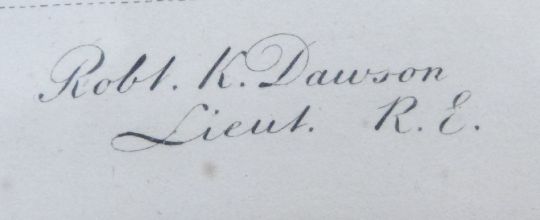 Robt. K. Dawson
Lieut. R. E.